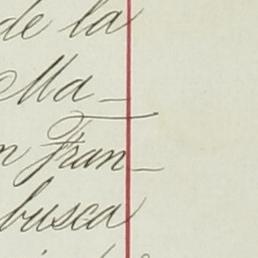 de la
Ma-
n Fran-
busca